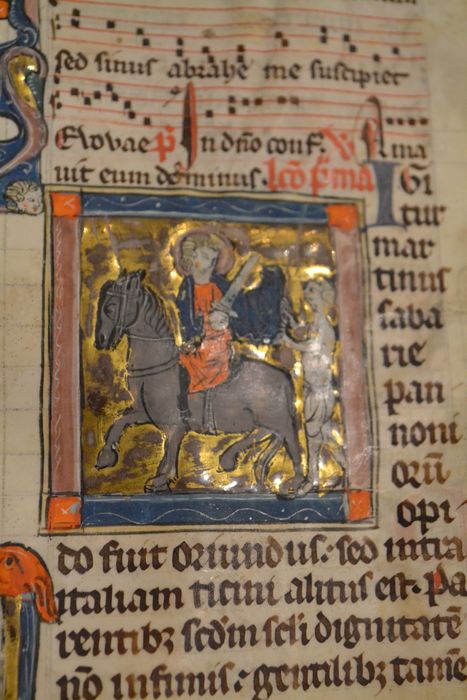 sed sinus abrahe me suscipiet
Evovae p̄ In dn̄o conf. V Ama
vit eum dominus. lc̄o p̄ma IGi
tur
mar
tinus
saba
rie
pan
noni
orū
opi
do fuit oriundus: sed intra
Italiam ticini alitus est. Pa
rentibꝫ scd̄m scl̄i dignitatē
nō infimis: gentilibꝫ tamē